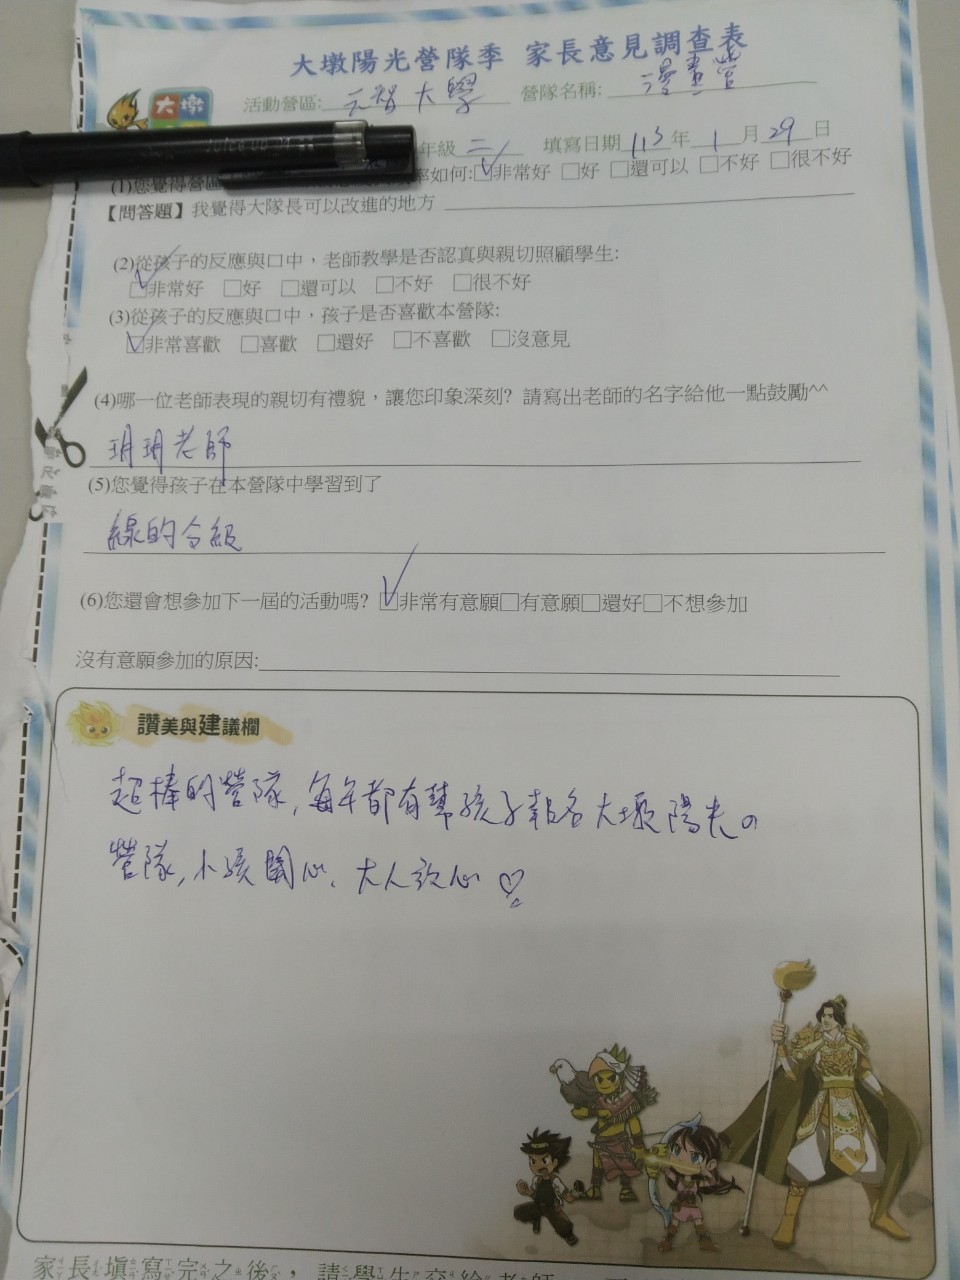 大墩陽光營隊季 家長意見調查表
大墩
活動營區: 元智大學 營隊名稱: 漫畫營
年級 二 填寫日期 113 年 1 月 29 日
(1)您覺得營區 率如何:☑非常好 □好 □還可以 □不好 □很不好
【問答題】我覺得大隊長可以改進的地方
(2)從孩子的反應與口中，老師教學是否認真與親切照顧學生:
☑非常好 □好 □還可以 □不好 □很不好
(3)從孩子的反應與口中，孩子是否喜歡本營隊:
☑非常喜歡 □喜歡 □還好 □不喜歡 □沒意見
(4)哪一位老師表現的親切有禮貌，讓您印象深刻? 請寫出老師的名字給他一點鼓勵^^
玥玥老師
(5)您覺得孩子在本營隊中學習到了
線的分級
(6)您還會想參加下一屆的活動嗎? ☑非常有意願□有意願□還好□不想參加
沒有意願參加的原因:
讚美與建議欄
超棒的營隊, 每年都有幫孩子報名大墩陽光の
營隊, 小孩開心, 大人放心♡
家長填寫完之後，請學生交給老師